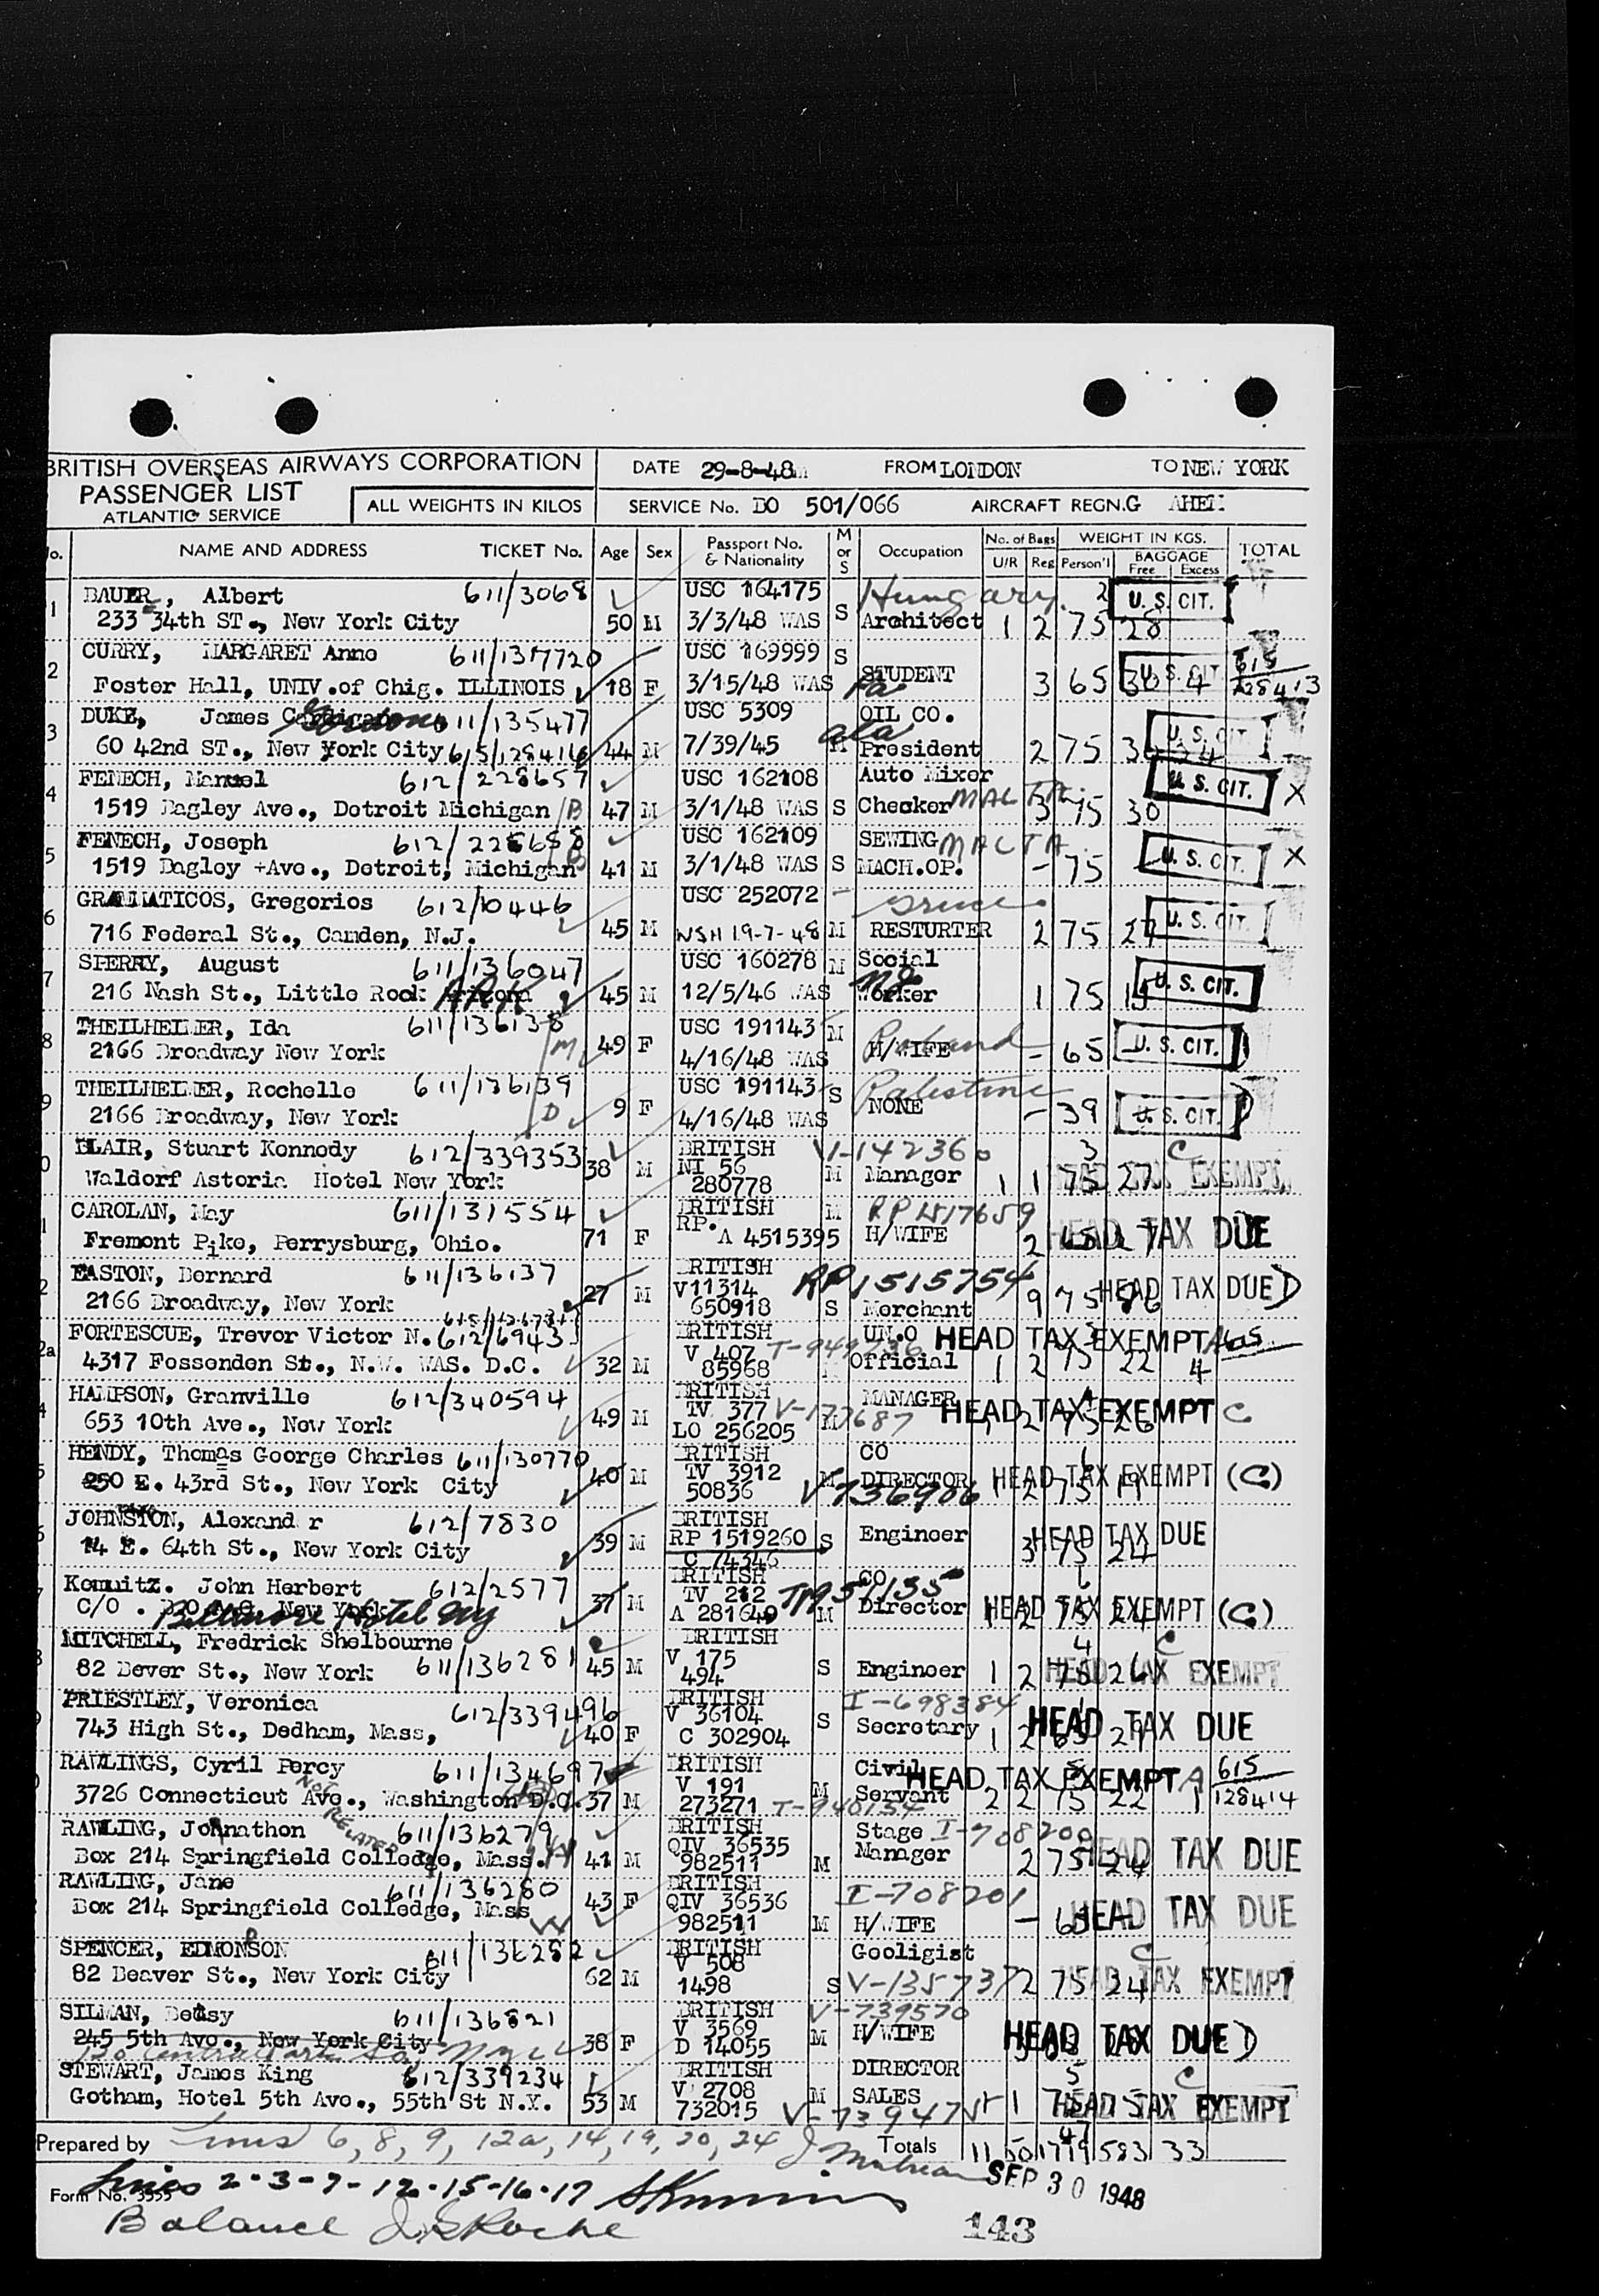 BRITISH OVERSEAS AIRWAYS CORPORATION DATE 29-8-48 FROM LONDON TO NEW YORK
PASSENGER LIST
ATLANTIC SERVICE ALL WEIGHTS IN KILOS SERVICE No. BO 501/066 AIRCRAFT REGN. G AHEM
No. NAME AND ADDRESS TICKET No. Age Sex Passport No. & Nationality M or S Occupation No. of Bags U/R Reg WEIGHT IN KGS. Person'l BAGGAGE Free Excess TOTAL
1 BAUER, Albert 611/3068 USC 164175 Hungary. 2 U. S. CIT.
233 34th ST., New York City 50 M 3/3/48 WAS S Architect 1 2 75 28
2 CURRY, MARGARET Anne 611/137720 USC 169999 S U. S. CIT. 615
Foster Hall, UNIV.of Chig. ILLINOIS 18 F 3/15/48 WAS STUDENT Pa 3 65 30 4 128413
3 DUKE, James Gordon 611/135477 USC 5309 OIL CO. U. S. CIT.
60 42nd ST., New York City 615/128416 44 M 7/39/45 M Ala President 2 75 30 34
4 FENECH, Manuel 612/228657 USC 162108 Auto Mixer U. S. CIT. X
1519 Bagley Ave., Detroit Michigan /B 47 M 3/1/48 WAS S Checker MALTA. 3 75 30
5 FENECH, Joseph 612/228658 USC 162109 SEWING MALTA U. S. CIT. X
1519 Bagley +Ave., Detroit, Michigan B 41 M 3/1/48 WAS S MACH.OP. - 75 -
6 GRAMMATICOS, Gregorios 612/10446 USC 252072 Greece. U. S. CIT.
716 Federal St., Camden, N.J. 45 M WSH 19-7-48 M RESTURTER 2 75 27
7 SPERRY, August 611/136047 USC 160278 M Social U. S. CIT.
216 Nash St., Little Rock ARK 45 M 12/5/46 WAS Worker 1 75 15
8 THEILHEIMER, Ida 611/136138 USC 191143 M Poland
2166 Broadway New York /M 49 F 4/16/48 WAS H/WIFE - 65 - U. S. CIT.
9 THEILHEIMER, Rochelle 611/136139 USC 191143 S Palestine
2166 Broadway, New York /D 9 F 4/16/48 WAS NONE - 39 U. S. CIT.
0 BLAIR, Stuart Kennedy 612/339353 BRITISH V-142360 3 C
Waldorf Astoria Hotel New York 38 M NI 56 280778 M Manager 1 1 75 27 HEAD TAX EXEMPT
1 CAROLAN, May 611/131554 BRITISH M RP 1517659
Fremont Pike, Perrysburg, Ohio. 71 F RP. A 4515395 H/WIFE 2 65 27 HEAD TAX DUE
2 EASTON, Bernard 611/136137 BRITISH RP 1515754
2166 Broadway, New York 27 M V11314 650918 S Merchant 9 75 86 HEAD TAX DUE D
2a FORTESCUE, Trevor Victor N. 612/6943 BRITISH T-949736 UN.O HEAD TAX EXEMPT A 615
4317 Fessenden St., N.W. WAS. D.C. 32 M V 407 85968 Official 1 2 75 22 4
4 HAMPSON, Granville 612/340594 BRITISH MANAGER 4
653 10th Ave., New York 49 M TV 377 LO 256205 V-173687 M 1 2 75 26 HEAD TAX EXEMPT C
5 HENDY, Thomas George Charles 611/130770 BRITISH CO
250 E. 43rd St., New York City 40 M TV 3912 50836 M DIRECTOR V736906 1 2 75 19 HEAD TAX EXEMPT (C)
6 JOHNSTON, Alexand r 612/7830 BRITISH
14 E. 64th St., New York City 39 M RP 1519260 C 74346 S Engineer 3 75 24 HEAD TAX DUE
7 Kemuitz. John Herbert 612/2577 BRITISH CO
C/O . B.O.A.C. New York Biltmore Hotel NY 37 M TV 212 A 281640 T1951135 M Director 1 2 75 HEAD TAX EXEMPT (C)
8 MITCHELL, Fredrick Shelbourne BRITISH 4 C
82 Bever St., New York 611/136281 45 M V 175 494 S Engineer 1 2 75 26 HEAD TAX EXEMPT
9 PRIESTLEY, Veronica 612/339496 BRITISH I-698384
743 High St., Dedham, Mass, 40 F V 36104 C 302904 S Secretary 1 2 65 29 HEAD TAX DUE
0 RAWLINGS, Cyril Percy 611/134697 BRITISH Civil HEAD TAX EXEMPT A 615
3726 Connecticut Ave., Washington D.C. 37 M V 191 273271 T-940154 M Servant 2 2 75 22 1 128414
NOT RELATED
RAWLING, Johnathon 611/136279 BRITISH Stage I-708200
Box 214 Springfield Colledge, Mass. /H 41 M QIV 36535 982511 M Manager 2 75 24 HEAD TAX DUE
RAWLING, Jane 611/136280 BRITISH I-708201
Box 214 Springfield Colledge, Mass W 43 F QIV 36536 982511 M H/WIFE - 65 - HEAD TAX DUE
SPENCER, EDMONSON 611/136282 BRITISH Gooligist C
82 Beaver St., New York City 62 M V 508 1498 S V-135737 2 75 24 HEAD TAX EXEMPT
SILMAN, Betsy 611/136821 BRITISH V-739570
245 5th Ave., New York City 38 F V 3569 D 14055 M H/WIFE HEAD TAX DUE D
120 Central Park So, NYC
STEWART, James King 612/339234 BRITISH DIRECTOR 5 C
Gotham, Hotel 5th Ave., 55th St N.Y. 53 M V 2708 732015 M SALES V-739475 1 1 75 15 HEAD TAX EXEMPT
Prepared by Lines 6, 8, 9, 12a, 14, 19, 20, 24 Totals 11 50 1779 583 33
SEP 30 1948
Form No. 3555 Lines 2-3-7-12-15-16-17
Balance 143